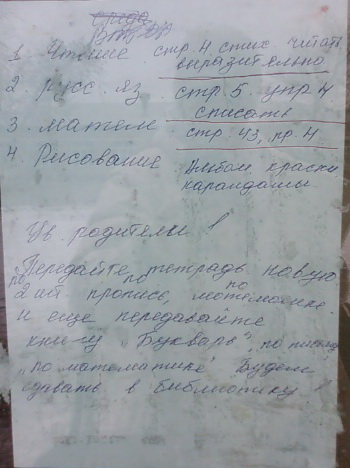 среда
Вторник
1 Чтение стр. 4 стих читать
выразительно
2. русс. яз. стр. 5. упр 4
списать
3. матем стр. 43, пр. 4.
4 Рисование Альбом краски
карандашы
Ув. родители!
Передайте тетрадь новую
по 2 ай пропись, по по математике
и еще передавайте
книгу „Букварь", по письму
„по математике" Будем
сдвать в Библиотику!